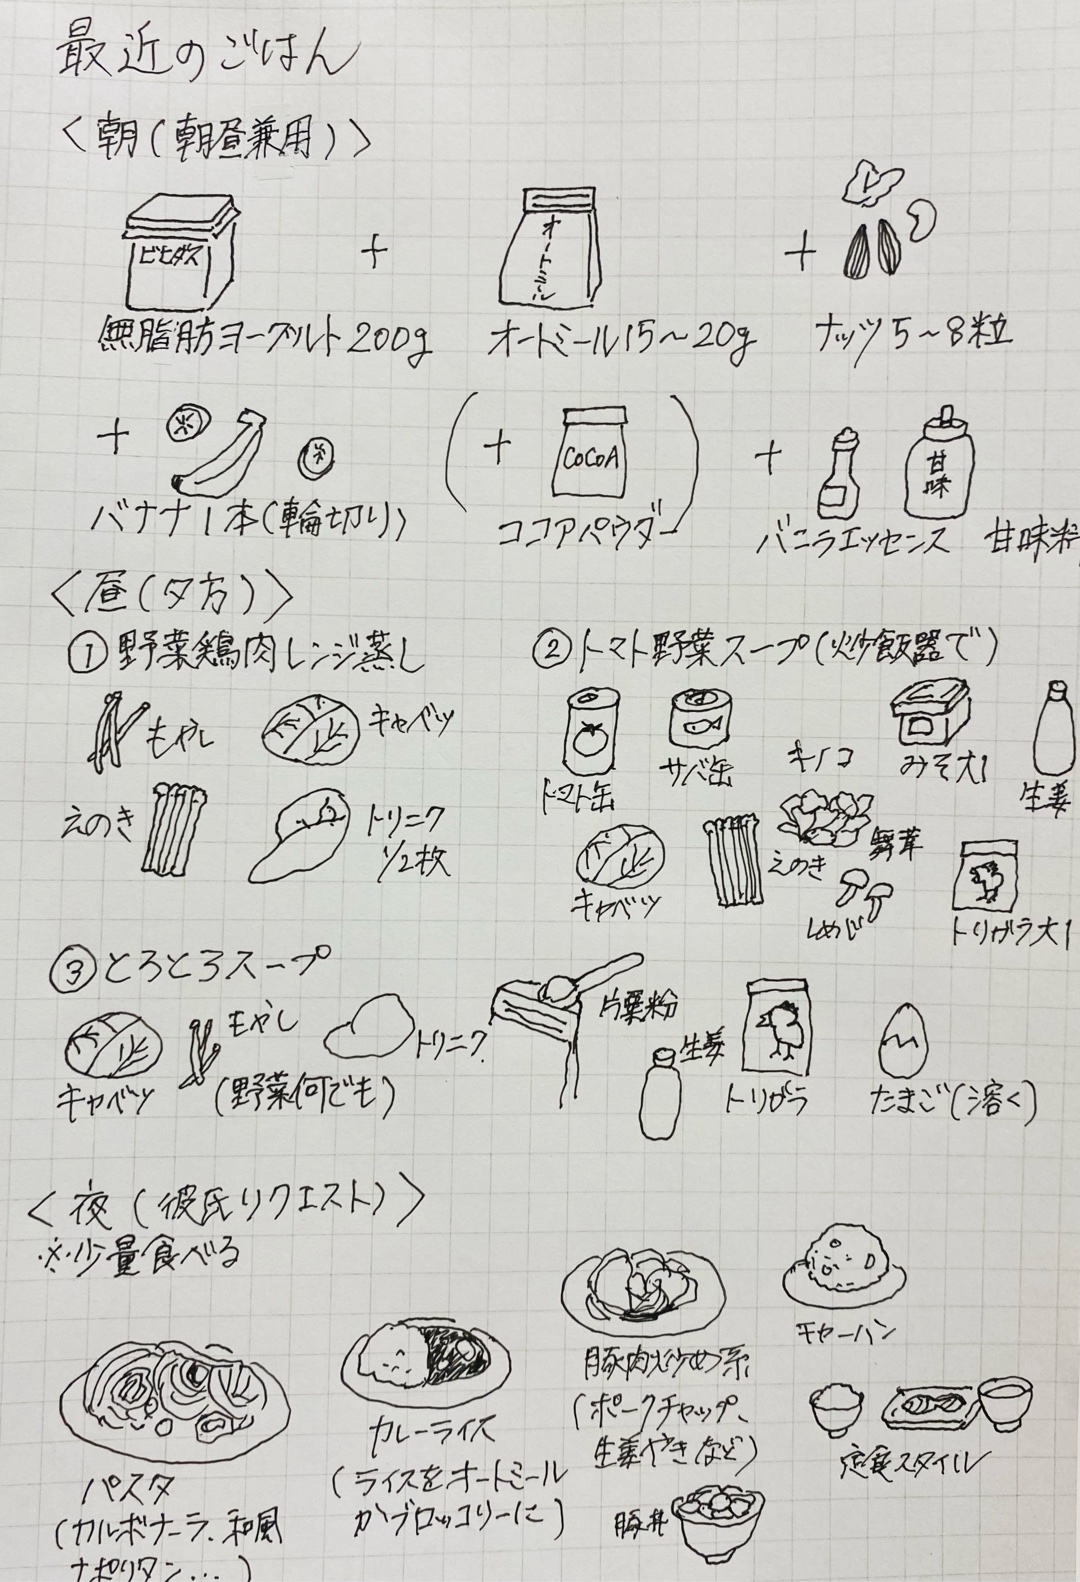 最近のごはん
<朝(朝昼兼用)>
ビヒダス
オートミール
+
+
無脂肪ヨーグルト200g
オートミール15~20g
ナッツ5~8粒
+
(+
COCOA
)
+
甘味
バナナ1本(輪切り)
ココアパウダー
バニラエッセンス
甘味料
<昼(夕方)>
①野菜鶏肉レンジ蒸し
もやし
キャベツ
えのき
トリニク
1/2枚
②トマト野菜スープ(炊飯器で)
トマト缶
サバ缶
キノコ
みそ大1
生姜
キャベツ
えのき
舞茸
しめじ
トリガラ大1
③とろとろスープ
キャベツ
もやし
(野菜何でも)
トリニク
片栗粉
生姜
トリガラ
たまご(溶く)
<夜(彼氏リクエスト)>
※少量食べる
パスタ
(カルボナーラ、和風
ナポリタン…)
カレーライス
(ライスをオートミール
かブロッコリーに)
豚肉炒め系
(ポークチャップ、
生姜やきなど)
豚丼
チャーハン
定食スタイル